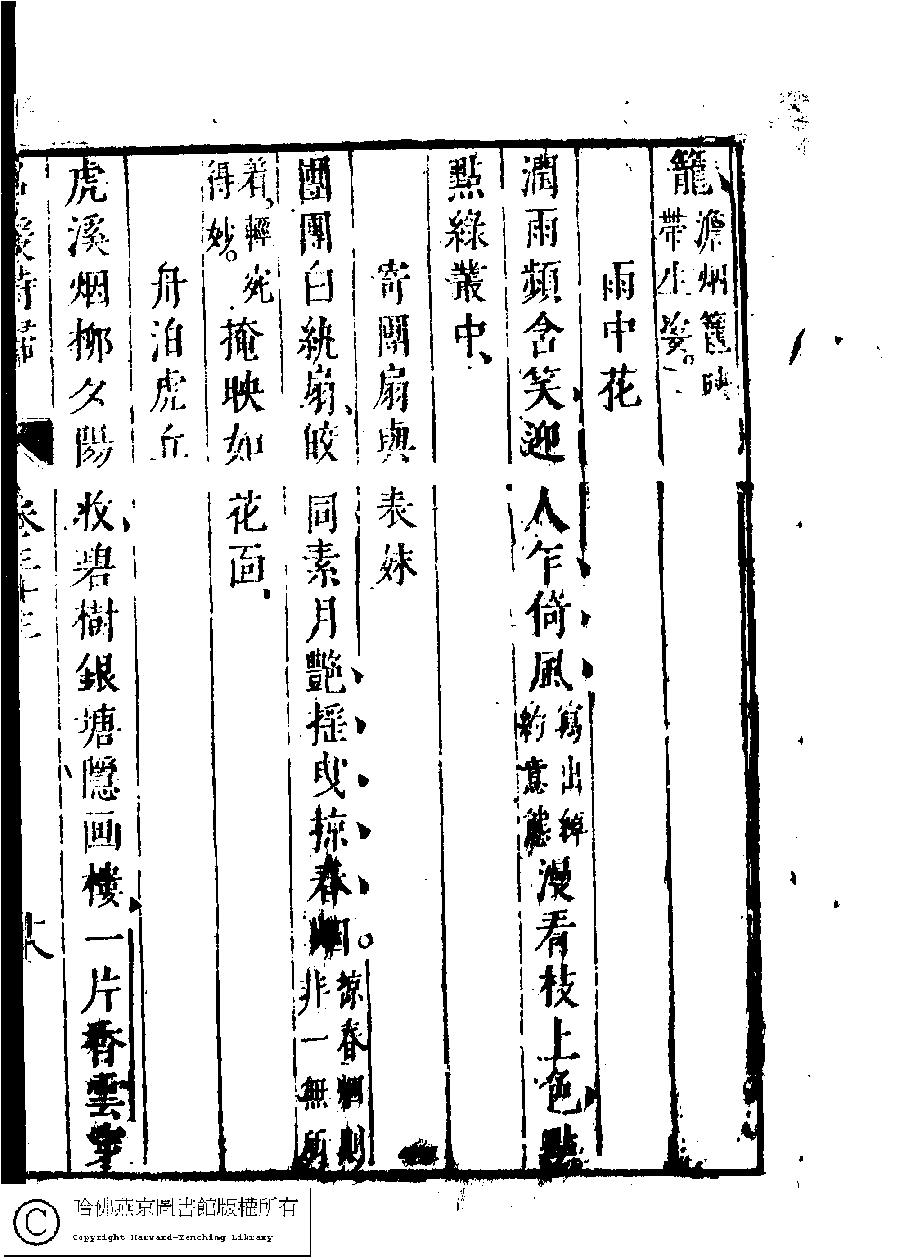 籠澹烟籠映帶生姿。
雨中花
潤雨頻含笑迎人乍倚風寫出綽約意態漫看枝上色點
點綠叢中
寄團扇與表妹
團團白紈扇皎同素月艷摇曳掠春烟掠春烟則非一無所
着輕宛得妙。掩映如花面
舟泊虎丘
虎溪烟柳夕陽收碧樹銀塘隱画樓一片香雲
名媛詩歸
卷三十三
十六
哈佛燕京圖書館版權所有
Copyright Harvard-Yenching Library